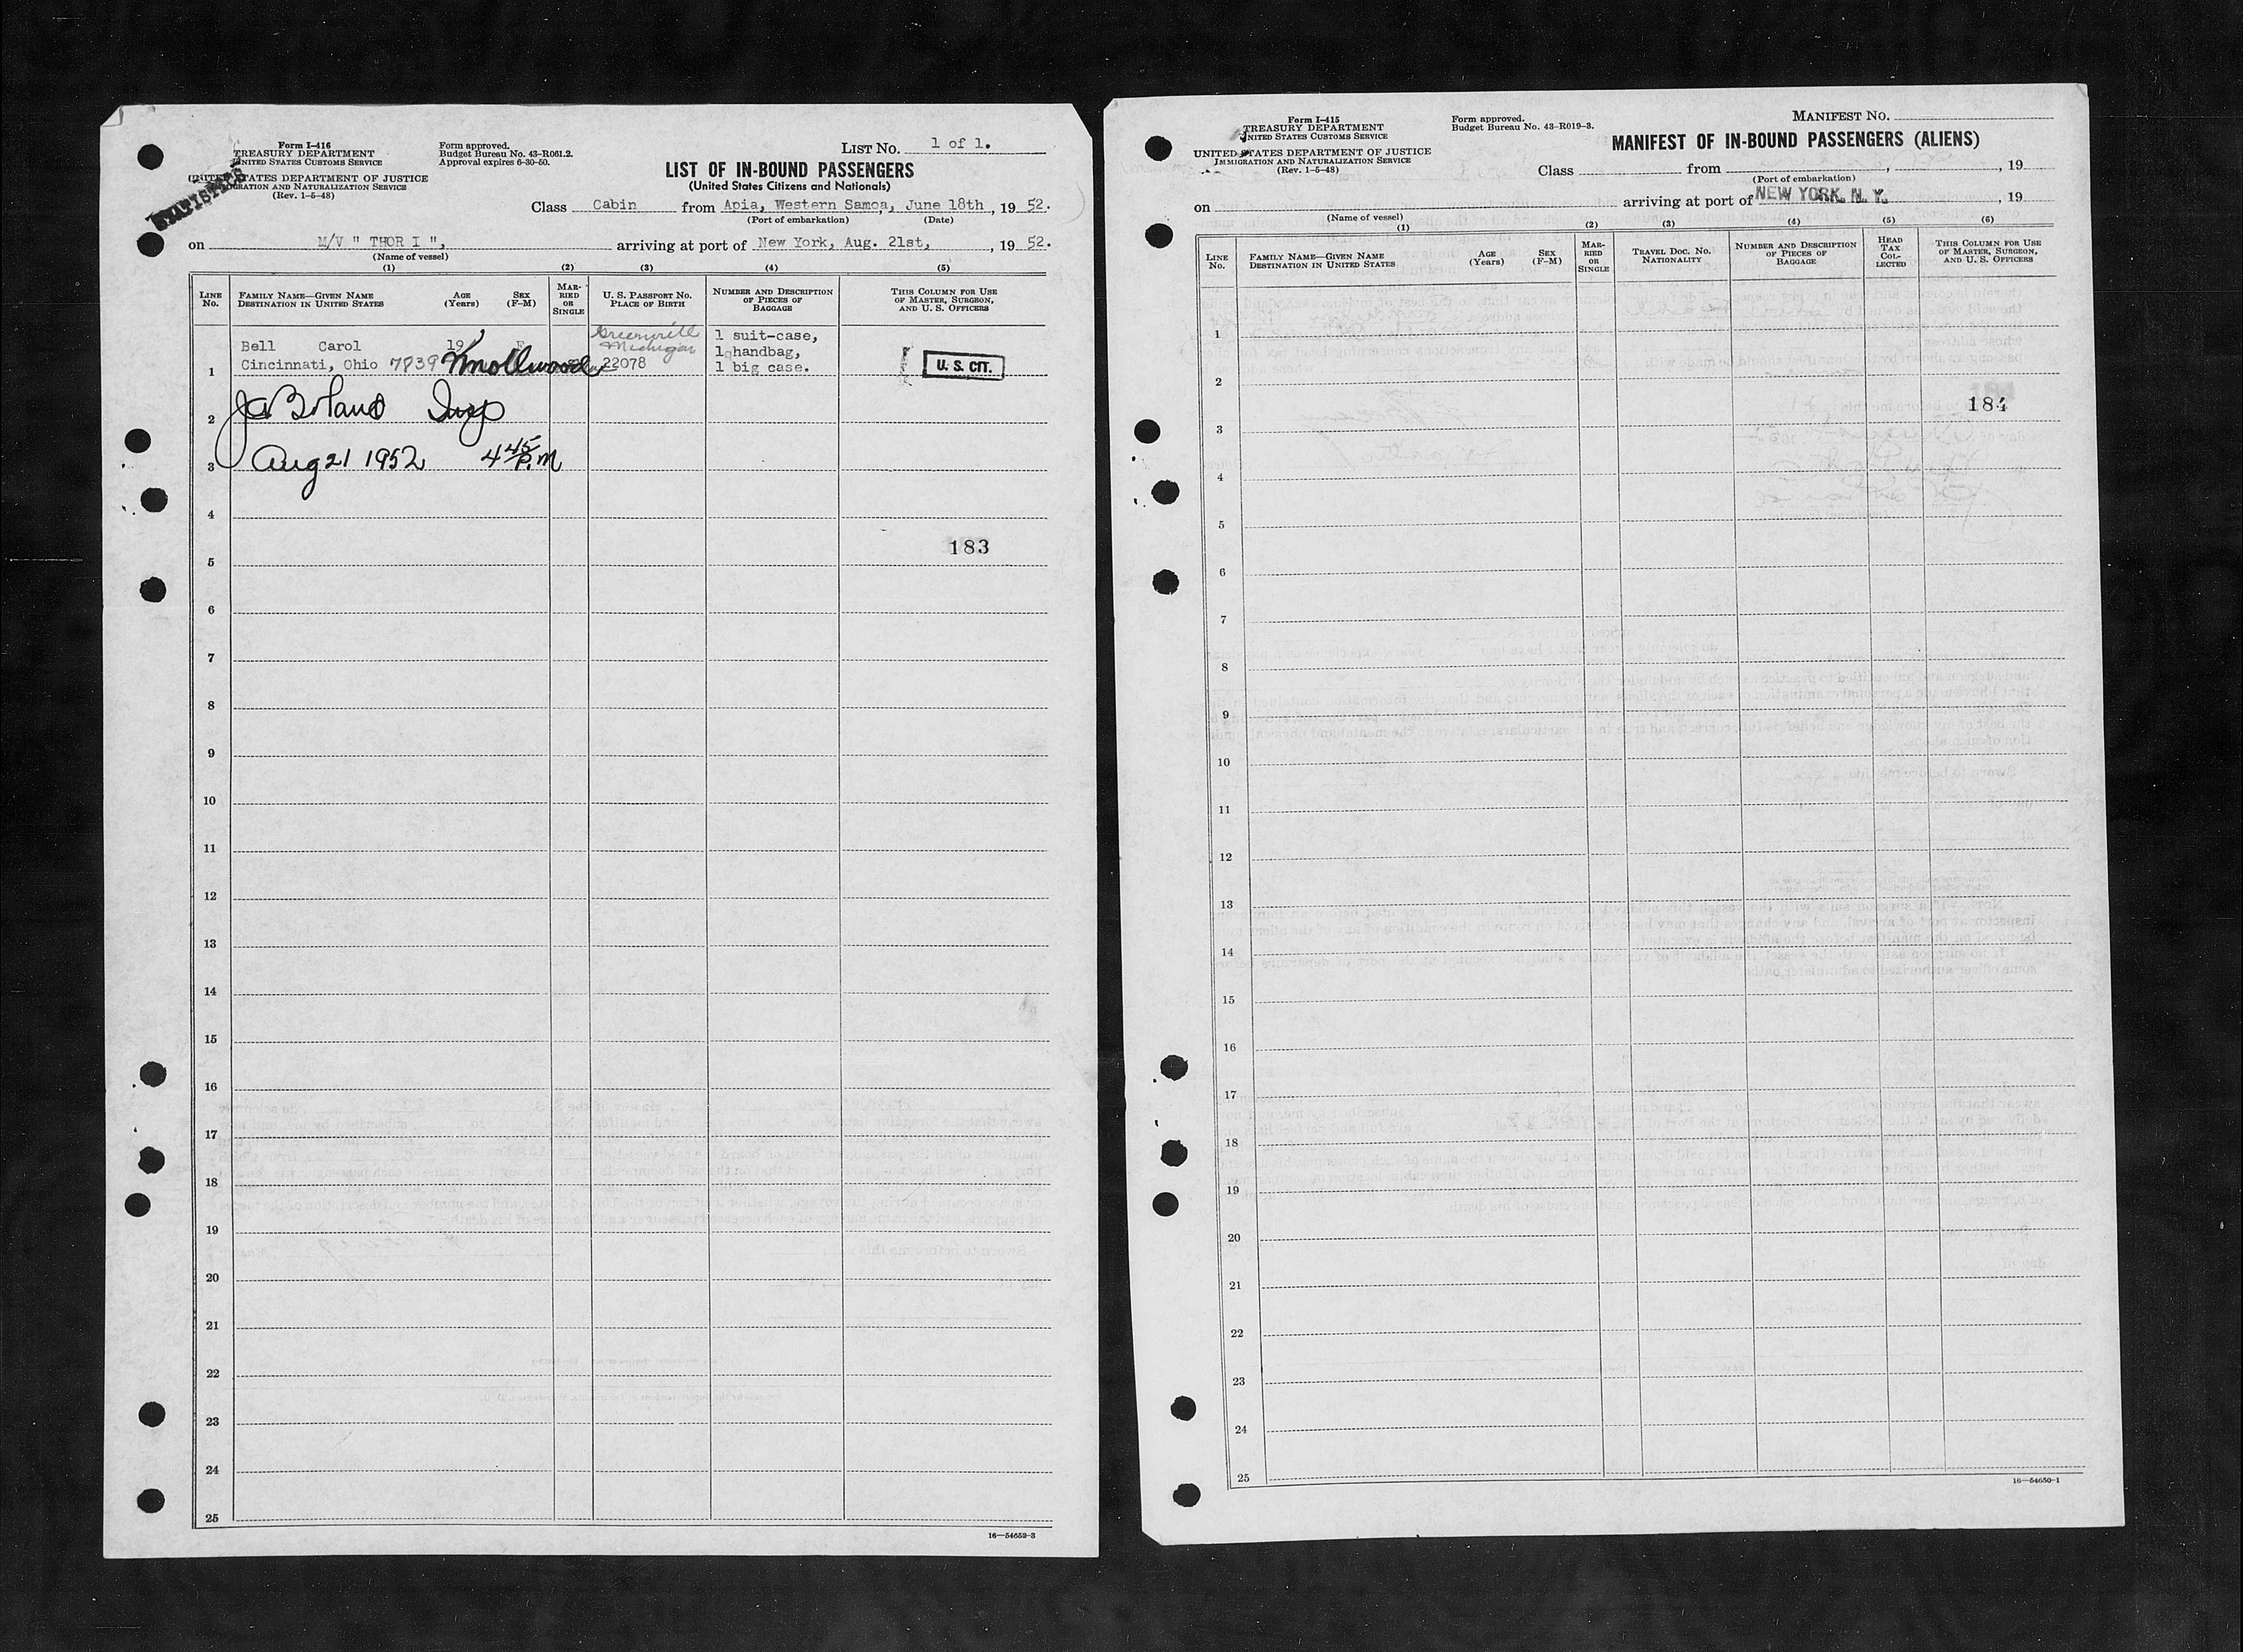 Form I-416
TREASURY DEPARTMENT
UNITED STATES CUSTOMS SERVICE
UNITED STATES DEPARTMENT OF JUSTICE
IMMIGRATION AND NATURALIZATION SERVICE
(Rev. 1-5-48)
STATISTICS
Form approved.
Budget Bureau No. 43-R061.2.
Approval expires 6-30-50.
LIST No. 1 of 1.
LIST OF IN-BOUND PASSENGERS
(United States Citizens and Nationals)
Class Cabin from Apia, Western Samoa, June 18th, 19 52.
(Port of embarkation) (Date)
on M/V " THOR I ", arriving at port of New York, Aug. 21st, , 19 52.
(Name of vessel)
(1) (2) (3) (4) (5)
LINE No. FAMILY NAME—GIVEN NAME DESTINATION IN UNITED STATES AGE (Years) SEX (F-M) MARRIED OR SINGLE U. S. PASSPORT No. PLACE OF BIRTH NUMBER AND DESCRIPTION OF PIECES OF BAGGAGE THIS COLUMN FOR USE OF MASTER, SURGEON, AND U. S. OFFICERS
Greenville Michigan
1 suit-case,
Bell Carol 19 F 1 handbag,
1 Cincinnati, Ohio 7839 Knollwood 22078 1 big case. U. S. CIT.
2 Insp
3 Aug 21 1952 4 45 P.M
4
183
5
6
7
8
9
10
11
12
13
14
15
16
17
18
19
20
21
22
23
24
25
16—54659-3
Form I-415
TREASURY DEPARTMENT
UNITED STATES CUSTOMS SERVICE
UNITED STATES DEPARTMENT OF JUSTICE
IMMIGRATION AND NATURALIZATION SERVICE
(Rev. 1-5-48)
Form approved.
Budget Bureau No. 43-R019-3.
MANIFEST No.
MANIFEST OF IN-BOUND PASSENGERS (ALIENS)
Class from , , 19
(Port of embarkation)
on arriving at port of NEW YORK, N. Y. , 19
(Name of vessel)
(1) (2) (3) (4) (5) (6)
LINE No. FAMILY NAME—GIVEN NAME DESTINATION IN UNITED STATES AGE (Years) SEX (F-M) MARRIED OR SINGLE TRAVEL DOC. No. NATIONALITY NUMBER AND DESCRIPTION OF PIECES OF BAGGAGE HEAD TAX COLLECTED THIS COLUMN FOR USE OF MASTER, SURGEON, AND U. S. OFFICERS
1
2
184
3
4
5
6
7
8
9
10
11
12
13
14
15
16
17
18
19
20
21
22
23
24
25
16—54650-1